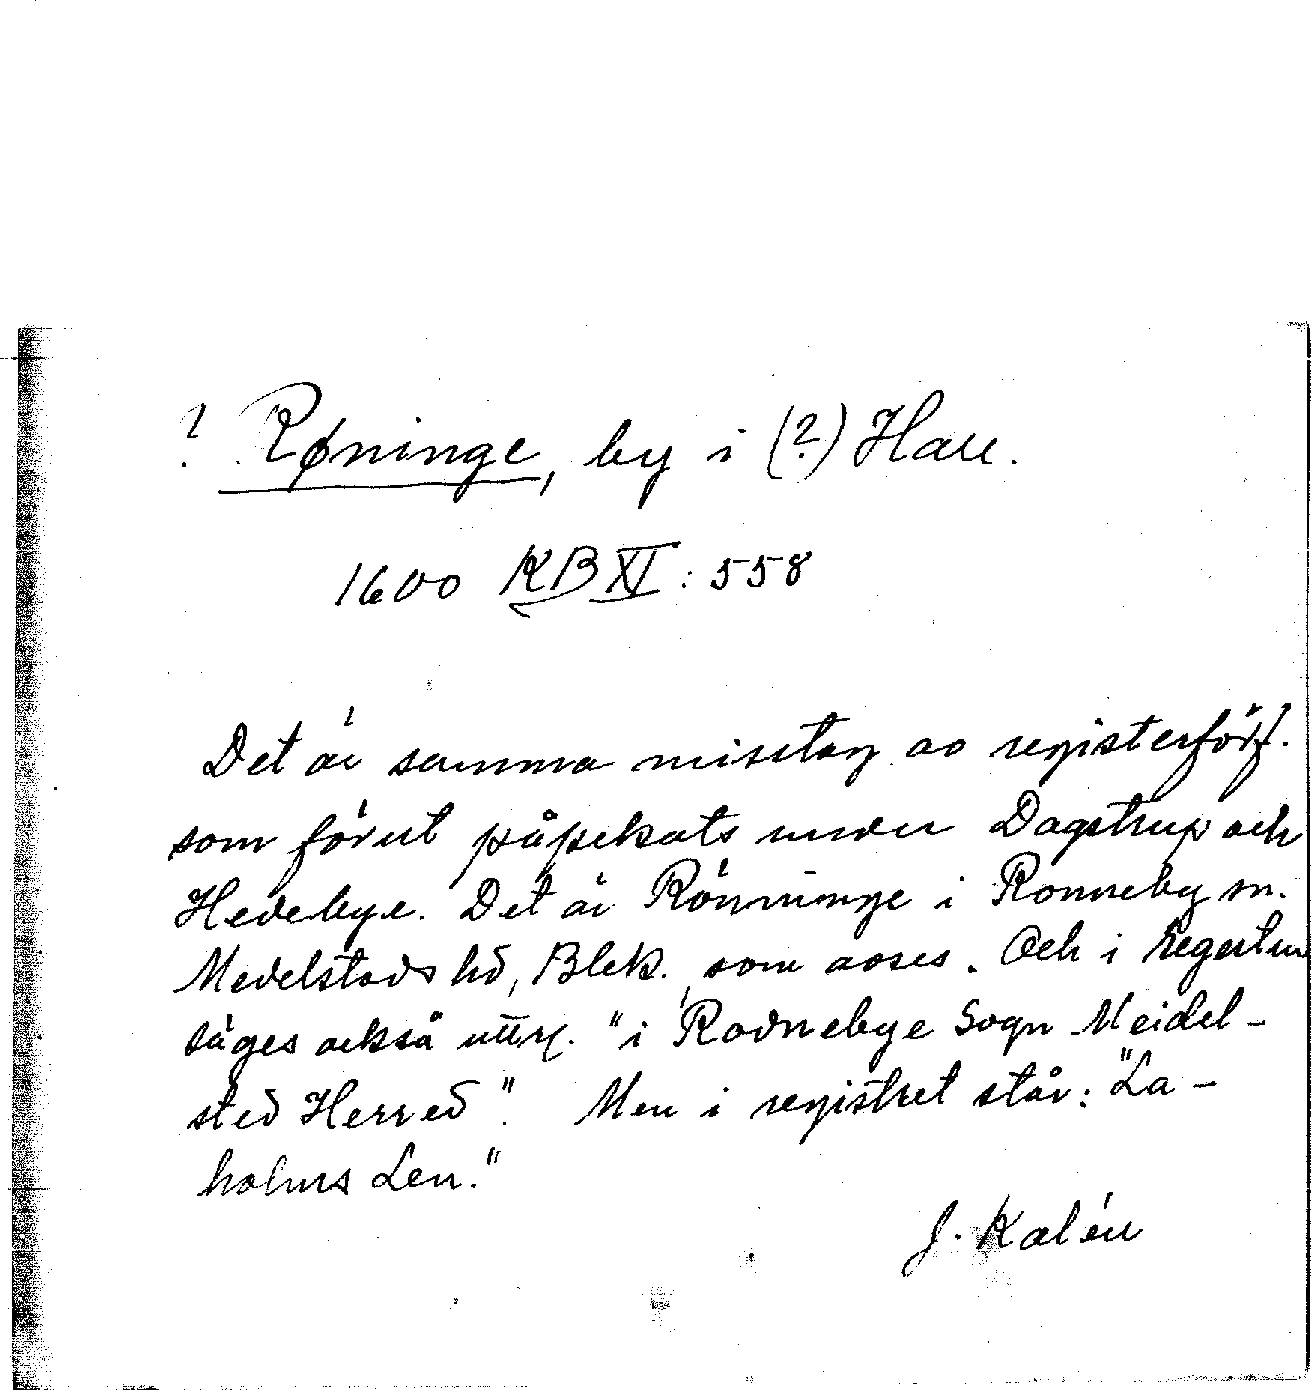 ? Røninge, by i (?) Hall.
1600 KB XI : 558
Det är samma misstag av registerförf.
som förut påpekats under Dagstrup och
Hedebye. Det är Rönninge i Ronneby sn.
Medelstads hd, Blek. som avses. Och i regesten
säges också uttr. "i Rodnebye Sogn Meidel-
sted Herred". Men i registret står: "La-
holms Len."
J. Kalén